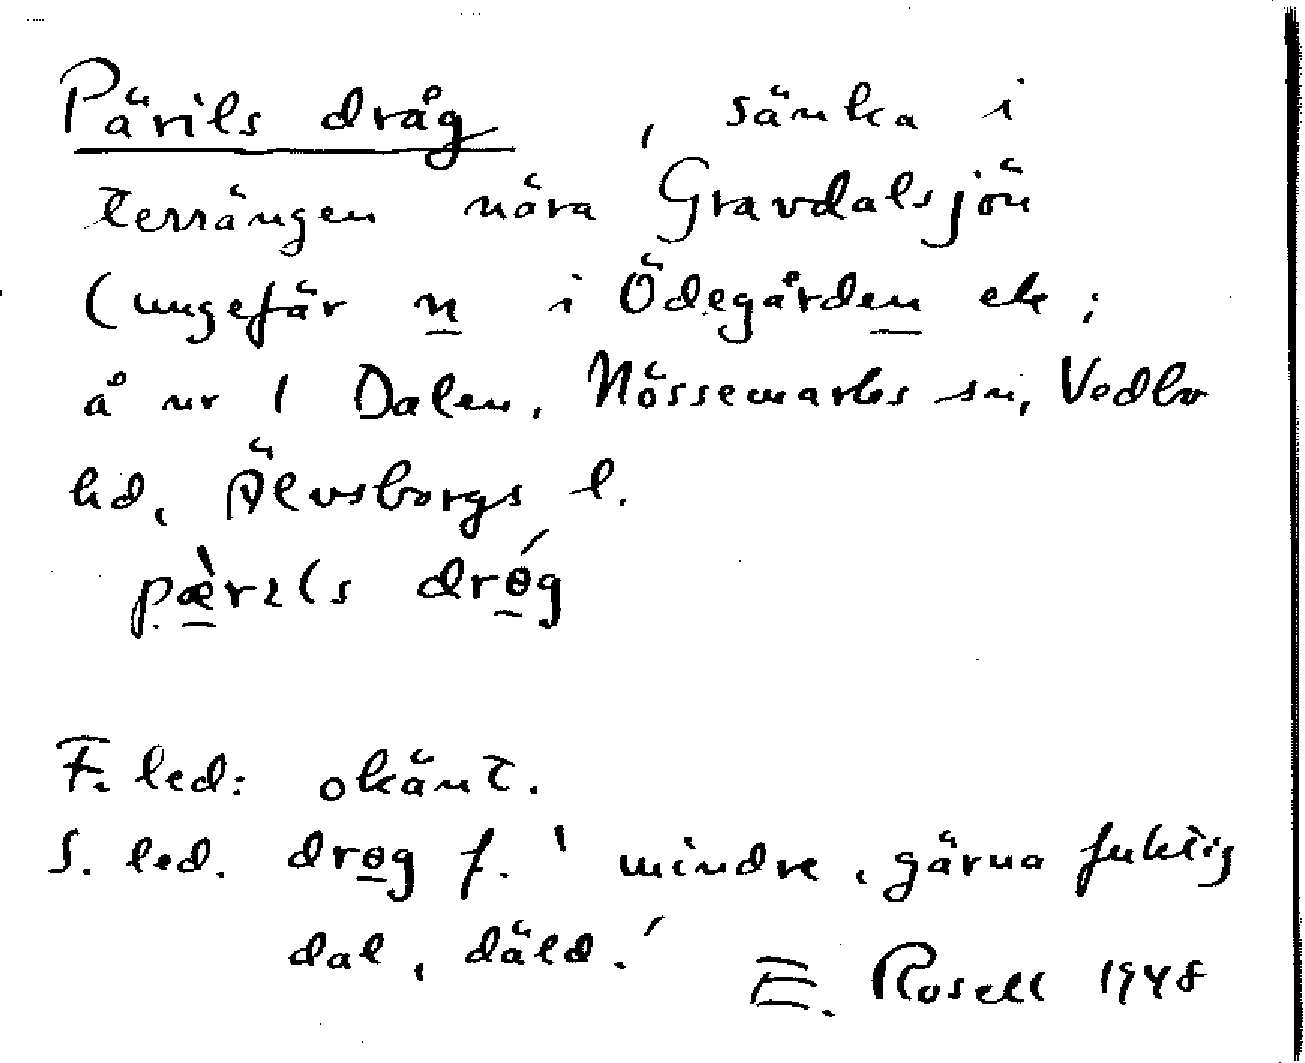 Pärils dråg, sänka i
terrängen nära Gravdalsjön
(ungefär n i Ödegården ek;
å nr 1 Dalen, Nössemarks sn, Vedbo
hd, Älvsborgs l.
pæ̀rɩls drɵ́g
F. led: okänt.
S. led. drɵg f. 'mindre, gärna fuktig
dal, däld.'
E. Rosell 1948